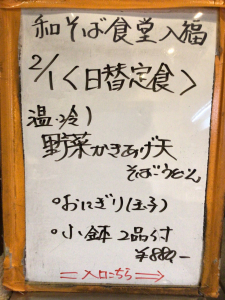 和そば食堂入福
2/1<日替定食>
温・冷)
野菜かきあげ天
そばorうどん
°おにぎり(玉子)
°小鉢2品付
¥880-
⇐入口こちら⇒